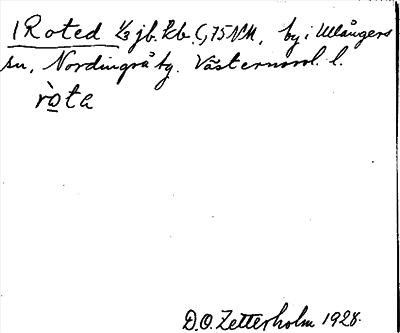 1 Roted ⅓ jb. Rb. G,75 NM, by i Ullångers
sn, Nordingrå tg. Västernorrl. l.
ròta
D.O. Zetterholm 1928.